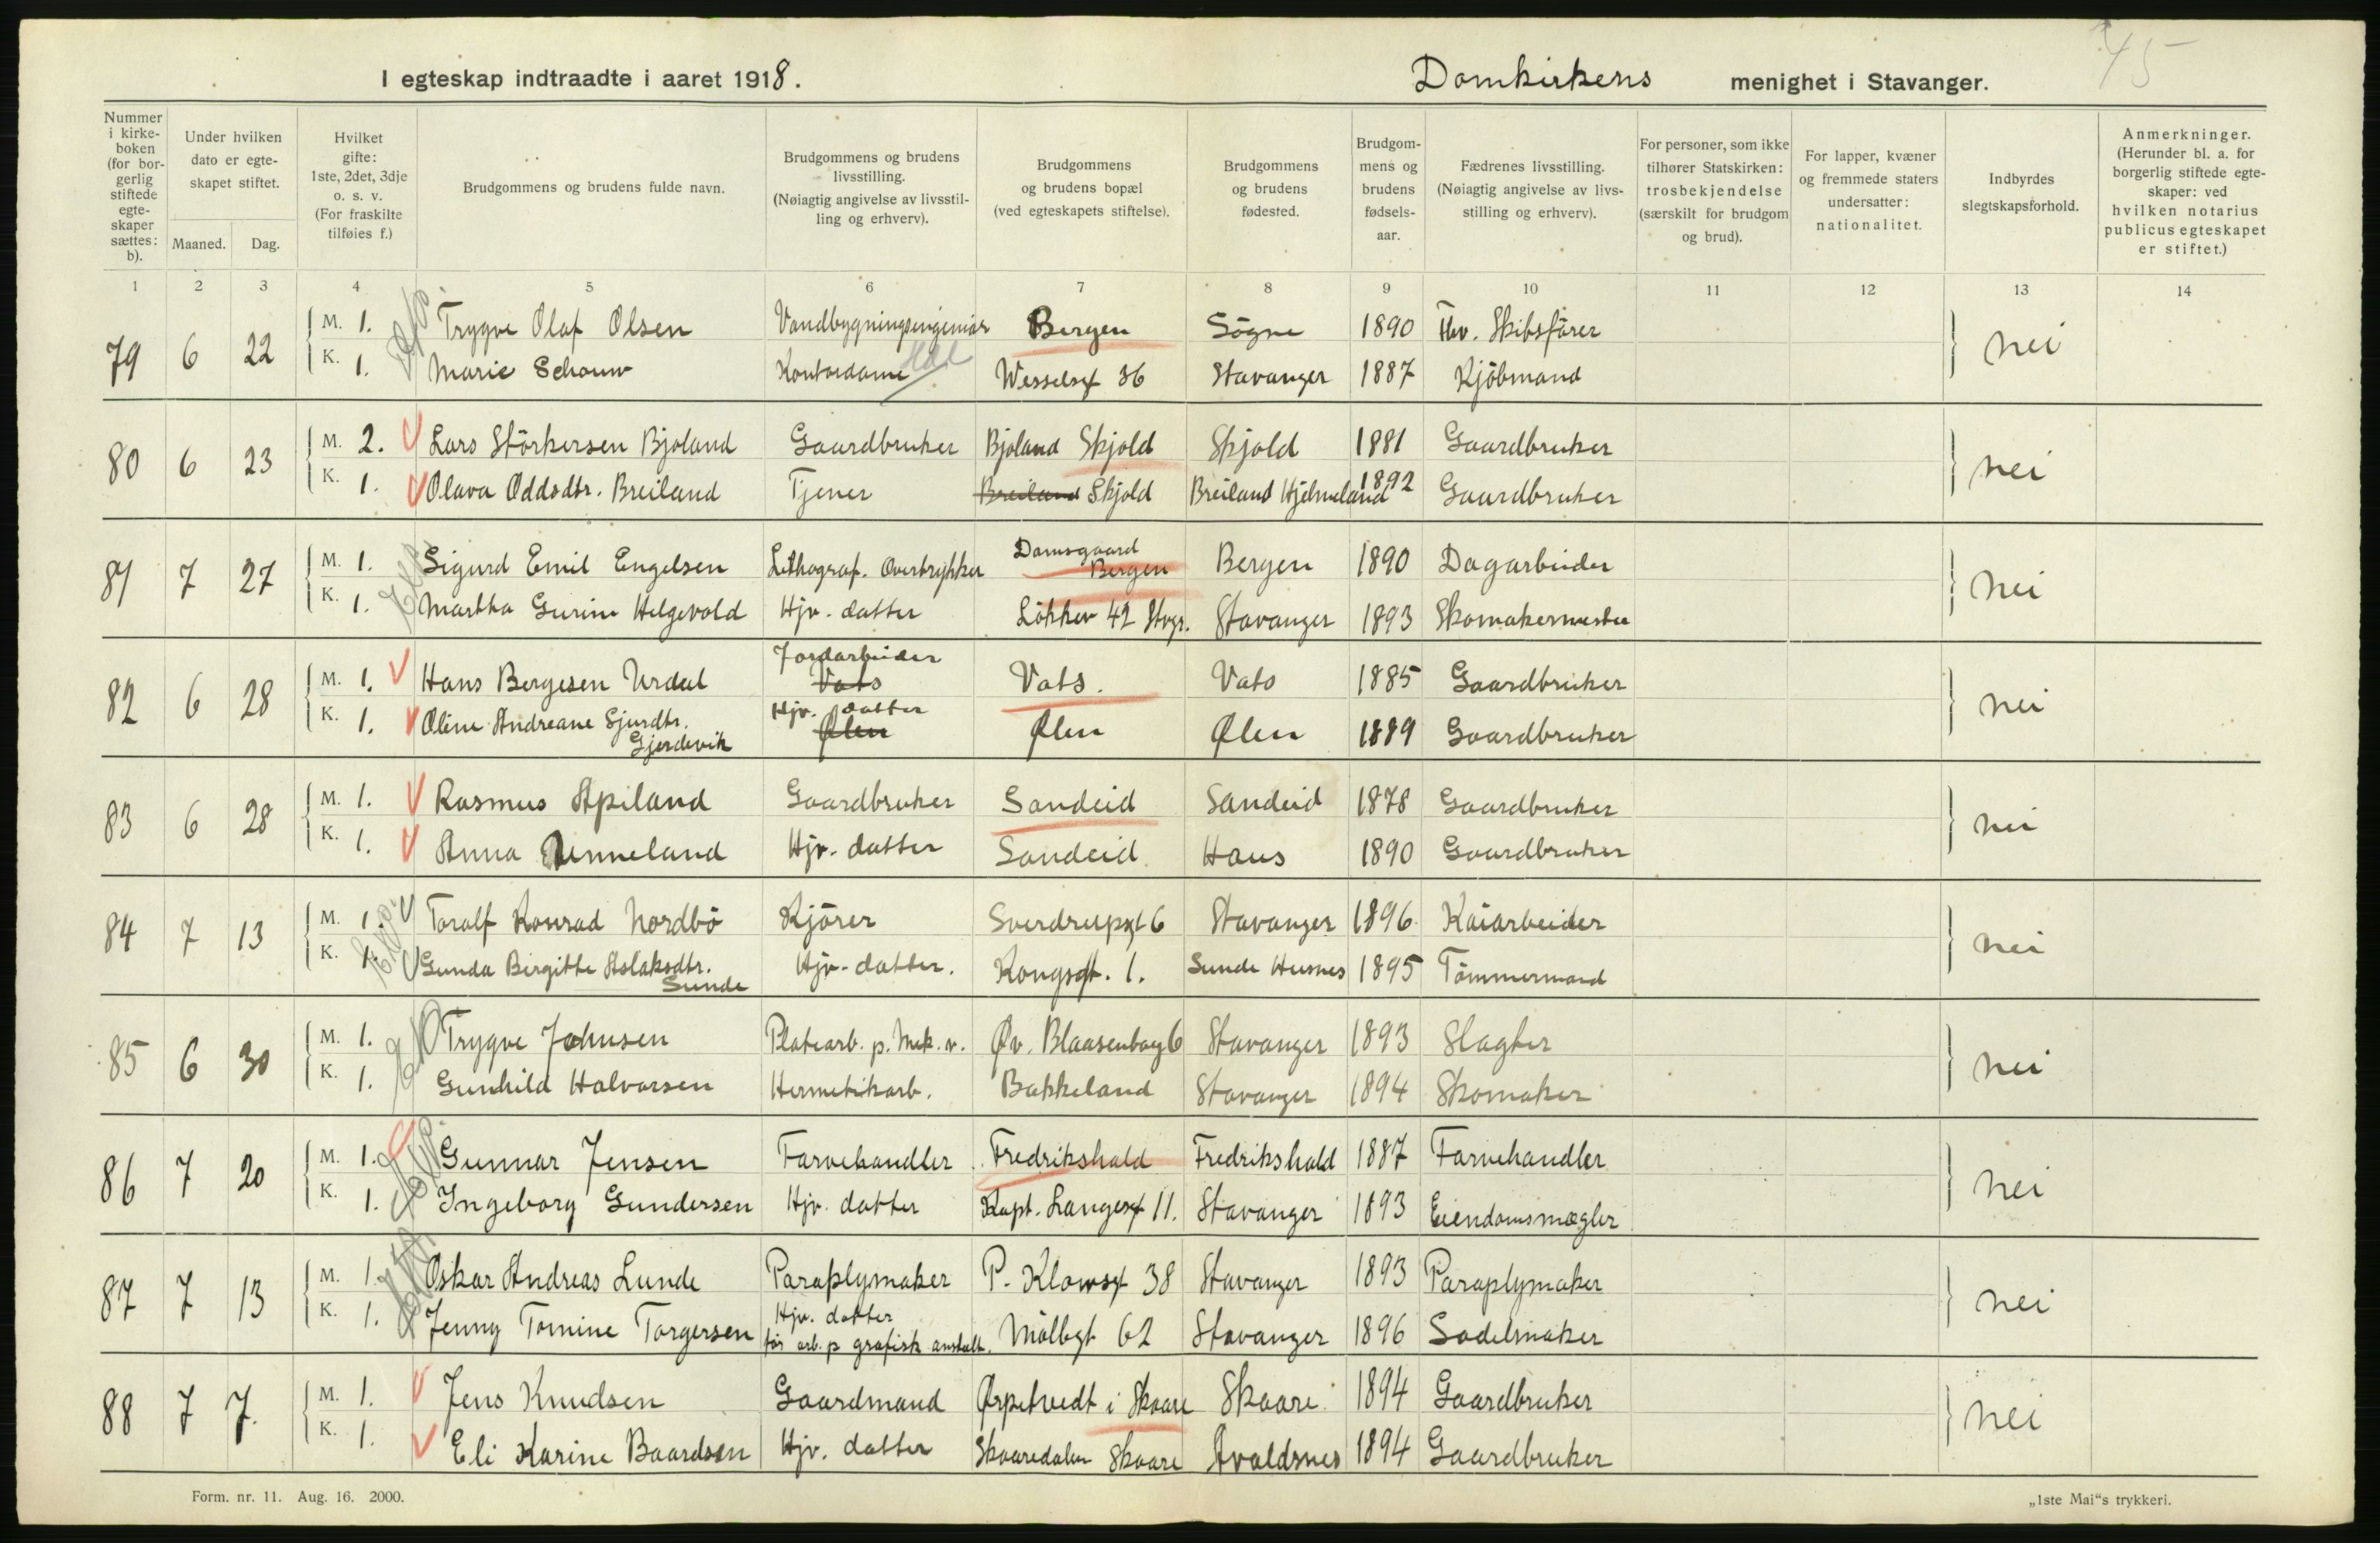 45
I egteskap indtraadte i aaret 1918. Domkirkens menighet i Stavanger.
Nummer i kirkeboken (for borgerlig stiftede egteskaper sættes: b).
Under hvilken dato er egteskapet stiftet.
Maaned. Dag.
Hvilket gifte: 1ste, 2det, 3dje o. s. v. (For fraskilte tilføies f.)
Brudgommens og brudens fulde navn.
Brudgommens og brudens livsstilling. (Nøiagtig angivelse av livsstilling og erhverv).
Brudgommens og brudens bopæl (ved egteskapets stiftelse).
Brudgommens og brudens fødested.
Brudgommens og brudens fødselsaar.
Fædrenes livsstilling. (Nøiagtig angivelse av livsstilling og erhverv).
For personer, som ikke tilhører Statskirken: trosbekjendelse (særskilt for brudgom og brud).
For lapper, kvæner og fremmede staters undersatter: nationalitet.
Indbyrdes slegtskapsforhold.
Anmerkninger. (Herunder bl. a. for borgerlig stiftede egteskaper: ved hvilken notarius publicus egteskapet er stiftet.)
1 2 3 4 5 6 7 8 9 10 11 12 13 14
79 6 22 M. 1. Trygve Olaf Olsen Vandbygningsingeniør Bergen Søgne 1890 Fhv. Skibsfører nei
K. 1. Marie Schouw Kontordame Wesselsgt 36 Stavanger 1887 Kjøbmand
80 6 23 M. 2. Lars Störkersen Bjoland Gaardbruker Bjoland Skjold Skjold 1881 Gaardbruker nei
K. 1. Olava Oddsdtr. Breiland Tjener Breiland Skjold Breiland Hjelmeland 1892 Gaardbruker
81 7 27 M. 1. Sigurd Emil Engelsen Lithograf. Overtrykker Damsgaard Bergen Bergen 1890 Dagarbeider nei
K. 1. Martha Gurine Helgevold Hjv. datter Løkkev 42 Stvgr. Stavanger 1893 Skomakermester
82 6 28 M. 1. Hans Bergesen Urdal Jordarbeider Vats Vats. Vats 1885 Gaardbruker nei
K. 1. Oline Andreane Sjurdtr. Gjerdevik Hjv. datter Ølen Ølen Ølen 1889 Gaardbruker
83 6 28 M. 1. Rasmus Apiland Gaardbruker Sandeid Sandeid 1878 Gaardbruker nei
K. 1. Anna Unneland Hjv. datter Sandeid Haus 1890 Gaardbruker
84 7 13 M. 1. Toralf Konrad Nordbø Kjører Sverdrupsgt 6 Stavanger 1896 Kaiarbeider nei
K. 1. Gunda Birgitte Aslaksdtr. Sunde Hjv. datter. Kongsgt. 1. Sunde Husnes 1895 Tømmermand
85 6 30 M. 1. Trygve Johnsen Platearb. p. Mek. v. Øv. Blaasenborg 6 Stavanger 1893 Slagter nei
K. 1. Gunhild Halvorsen Hermetikarb. Bakkeland Stavanger 1894 Skomaker
86 7 20 M. 1. Gunnar Jensen Farvehandler Fredrikshald Fredrikshald 1887 Farvehandler nei
K. 1. Ingeborg Gundersen Hjv. datter Kapt. Langesgt 11. Stavanger 1893 Eiendomsmægler
87 7 13 M. 1. Oskar Andreas Lunde Paraplymaker P. Klowsgt 38 Stavanger 1893 Paraplymaker nei
K. 1. Jenny Tomine Torgersen Hjv. datter før arb. p grafisk anstalt. Møllegt 62 Stavanger 1896 Sadelmaker
88 7 7. M. 1. Jens Knudsen Gaardmand Ørpetvedt i Skaare Skaare 1894 Gaardbruker nei
K. 1. Eli Karine Baardsen Hjv. datter Skaaredalen Skaare Avaldsnes 1894 Gaardbruker
Form. nr. 11. Aug. 16. 2000. „1ste Mai“s trykkeri.